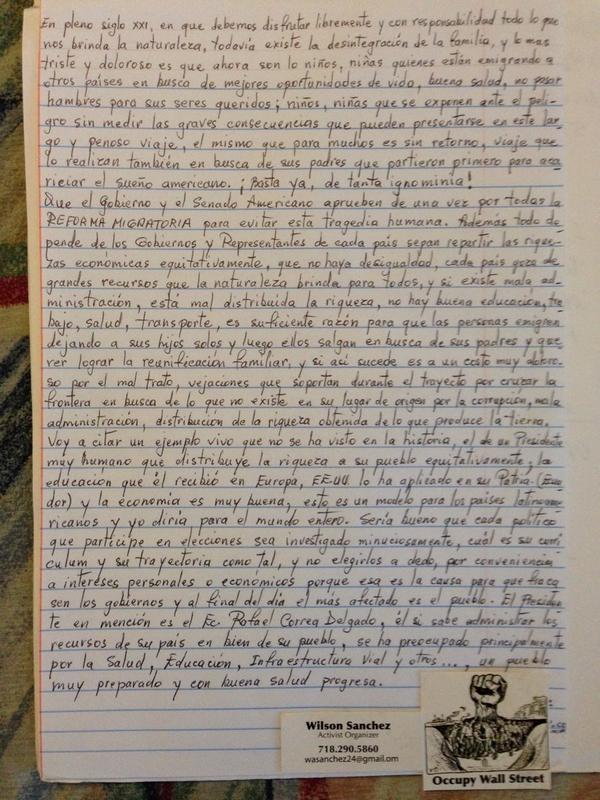 En pleno siglo XXI, en que debemos disfrutar libremente y con responsabilidad todo lo que
nos brinda la naturaleza, todavía existe la desintegración de la familia, y lo mas
triste y doloroso es que ahora son lo niños, niñas quienes están emigrando a
otros países en busca de mejores oportunidades de vida, buena salud, no pasar
hambres para sus seres queridos; niños, niñas que se exponen ante el peli-
gro sin medir las graves consecuencias que pueden presentarse en este lar-
go y penoso viaje, el mismo que para muchos es sin retorno, viaje que
lo realizan también en busca de sus padres que partieron primero para aca
riciar el sueño americano. ¡Basta ya, de tanta ignominia!
Que el Gobierno y el Senado Americano aprueben de una vez por todas la
REFORMA MIGRATORIA para evitar esta tragedia humana. Además todo de-
pende de los Gobiernos y Representantes de cada país sepan repartir las rique-
zas económicas equitativamente, que no haya desigualdad, cada país goza de
grandes recursos que la naturaleza brinda para todos, y si existe mala ad-
ministración, está mal distribuida la riqueza, no hay buena educación, tra
bajo, salud, transporte, es suficiente razón para que las personas emigren
dejando a sus hijos solos y luego ellos salgan en busca de sus padres y que-
rer lograr la reunificación familiar, y si así sucede es a un costo muy doloro-
so por el mal trato, vejaciones que soportan durante el trayecto por cruzar la
frontera en busca de lo que no existe en su lugar de origen por la corrupción, mala
administración, distribución de la riqueza obtenida de lo que produce la tierra.
Voy a citar un ejemplo vivo que no se ha visto en la historia, el de un Presidente
muy humano que distribuye la riqueza a su pueblo equitativamente, la
educación que él recibió en Europa, EE.UU lo ha aplicado en su Patria (Ecua
dor) y la economía es muy buena, esto es un modelo para los países latinoame
ricanos y yo diría para el mundo entero. Sería bueno que cada político
que participe en elecciones sea investigado minuciosamente, cuál es su curri
culum y su trayectoria como tal, y no elegirlos a dedo, por conveniencia
a intereses personales o económicos porque esa es la causa para que fraca
sen los gobiernos y al final del día el más afectado es el pueblo. El Presiden-
te en mención es el Ec. Rafael Correa Delgado, él si sabe administrar los
recursos de su país en bien de su pueblo, se ha preocupado principalmente
por la Salud, Educación, Infraestructura Vial y otros..., un pueblo
muy preparado y con buena salud progresa.
Wilson Sanchez
Activist Organizer
718.290.5860
wasanchez24@gmail.om
Occupy Wall Street